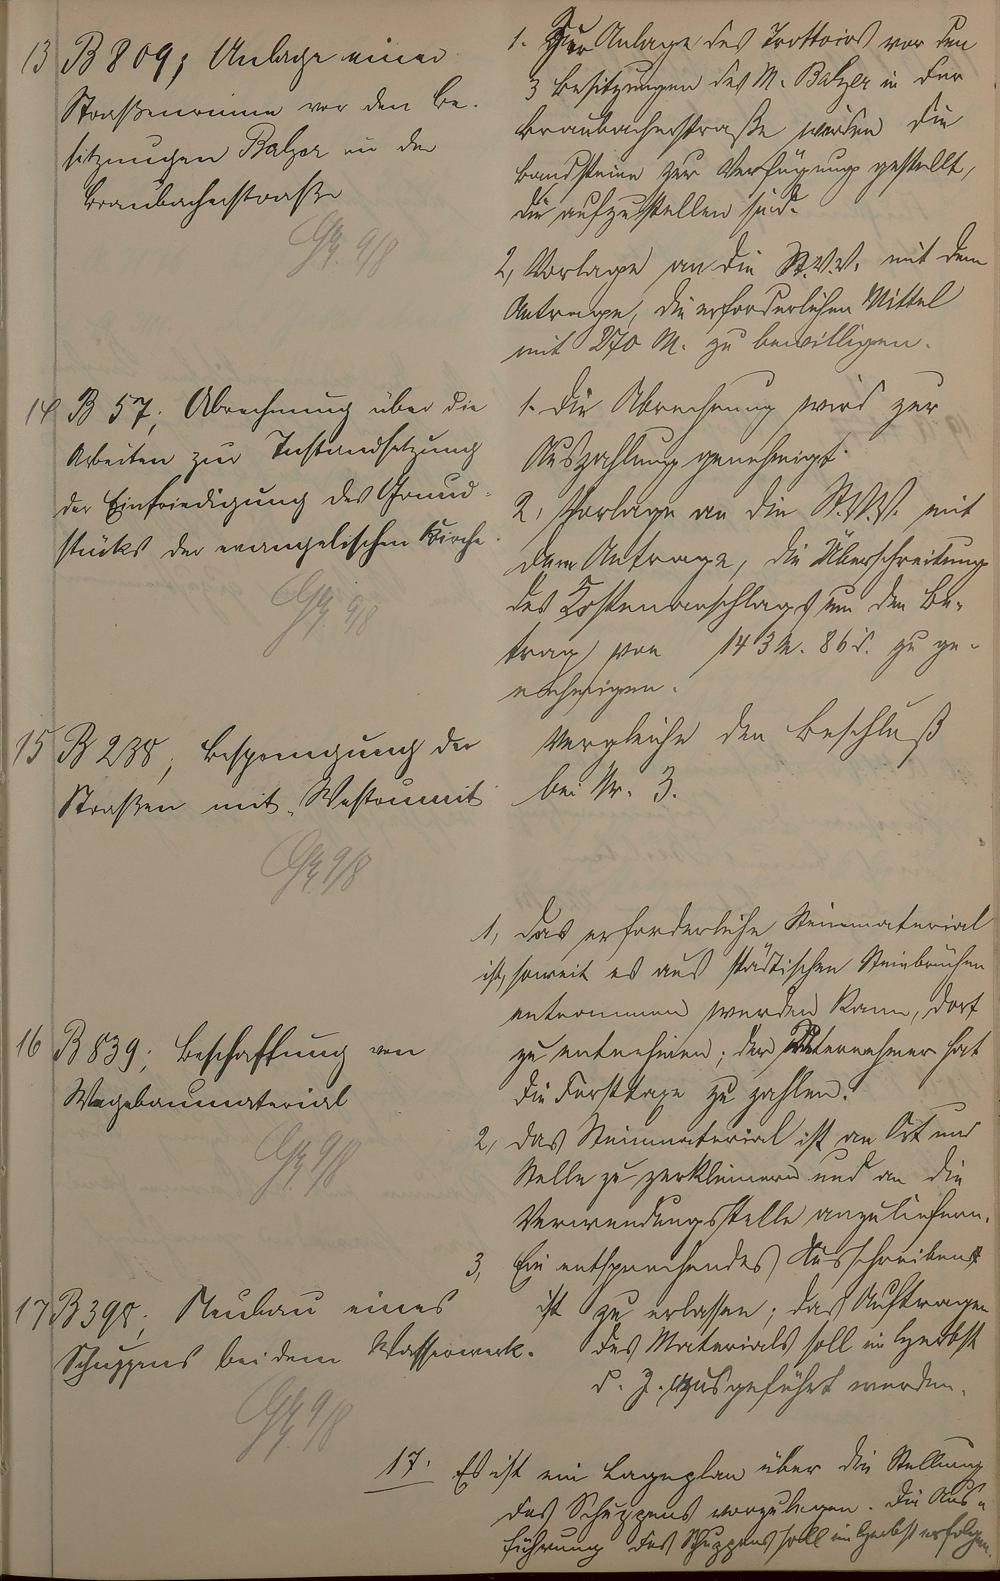 13 B 809; Anlage einer
Straßenrinne vor den Be-
sitzungen Balzer in der
Braubacherstraße
9/8
1. Zur Anlage des Trottoirs vor den
3 Besitzungen des M. Balzer in der
Braubacherstraße werden die
Bandsteine zur Verfügung gestellt,
die aufzustellen sind.
2, Vorlage an die St.V.V. mit dem
Antrage, die erforderlichen Mittel
mit 270 M. zu bewilligen.
14 B 57; Abrechnung über die
Arbeiten zur Instandsetzung
der Einfriedigung des Grund-
stücks der evangelischen Kirche.
9/8
1. Die Abrechnung wird zur
Auszahlung genehmigt.
2, Vorlage an die St.V.V. mit
dem Antrage, die Überschreitung
des Kostenanschlags um den Be-
trag von 143 M. 86 d. zu ge-
nehmigen.
15 B 238; Besprengung der
Straßen mit Westrumit
9/8
Vergleiche den Beschluß
bei Nr. 3.
16 B 839; Beschaffung von
Wegebaumaterial
9/8
1, Das erforderliche Steinmaterial
ist, soweit es aus städtischen Steinbrüchen
entnommen werden kann, dort
zu entnehmen; der Unternehmer hat
die Forsttaxe zu zahlen.
2, Das Steinmaterial ist an Ort und
Stelle zu zerkleinern und an die
Verwendungsstelle anzuliefern.
3, Ein entsprechendes Ausschreiben
ist zu erlassen; das Auftragen
des Materials soll im Herbst
d. J. ausgeführt werden.
17 B 398; Neubau eines
Schuppens bei dem Wasserwerk.
9/8
17. Es ist ein Lageplan über die Stellung
des Schuppens vorzulegen. Die Aus-
führung des Schuppens soll im Herbst erfolgen.